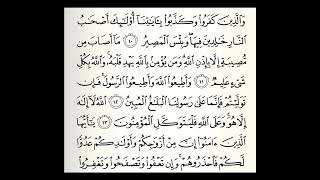 وَٱلَّذِينَ كَفَرُوا۟ وَكَذَّبُوا۟ بِـَٔايَٰتِنَآ أُو۟لَٰٓئِكَ أَصْحَٰبُ
ٱلنَّارِ خَٰلِدِينَ فِيهَا ۖ وَبِئْسَ ٱلْمَصِيرُ ١٠ مَآ أَصَابَ مِن
مُّصِيبَةٍ إِلَّا بِإِذْنِ ٱللَّهِ ۗ وَمَن يُؤْمِنۢ بِٱللَّهِ يَهْدِ قَلْبَهُۥ ۚ وَٱللَّهُ بِكُلِّ
شَىْءٍ عَلِيمٌ ١١ وَأَطِيعُوا۟ ٱللَّهَ وَأَطِيعُوا۟ ٱلرَّسُولَ ۚ فَإِن
تَوَلَّيْتُمْ فَإِنَّمَا عَلَىٰ رَسُولِنَا ٱلْبَلَٰغُ ٱلْمُبِينُ ١٢ ٱللَّهُ لَآ إِلَٰهَ
إِلَّا هُوَ ۚ وَعَلَى ٱللَّهِ فَلْيَتَوَكَّلِ ٱلْمُؤْمِنُونَ ١٣ يَٰٓأَيُّهَا
ٱلَّذِينَ ءَامَنُوٓا۟ إِنَّ مِنْ أَزْوَٰجِكُمْ وَأَوْلَٰدِكُمْ عَدُوًّا
لَّكُمْ فَٱحْذَرُوهُمْ ۚ وَإِن تَعْفُوا۟ وَتَصْفَحُوا۟ وَتَغْفِرُوا۟